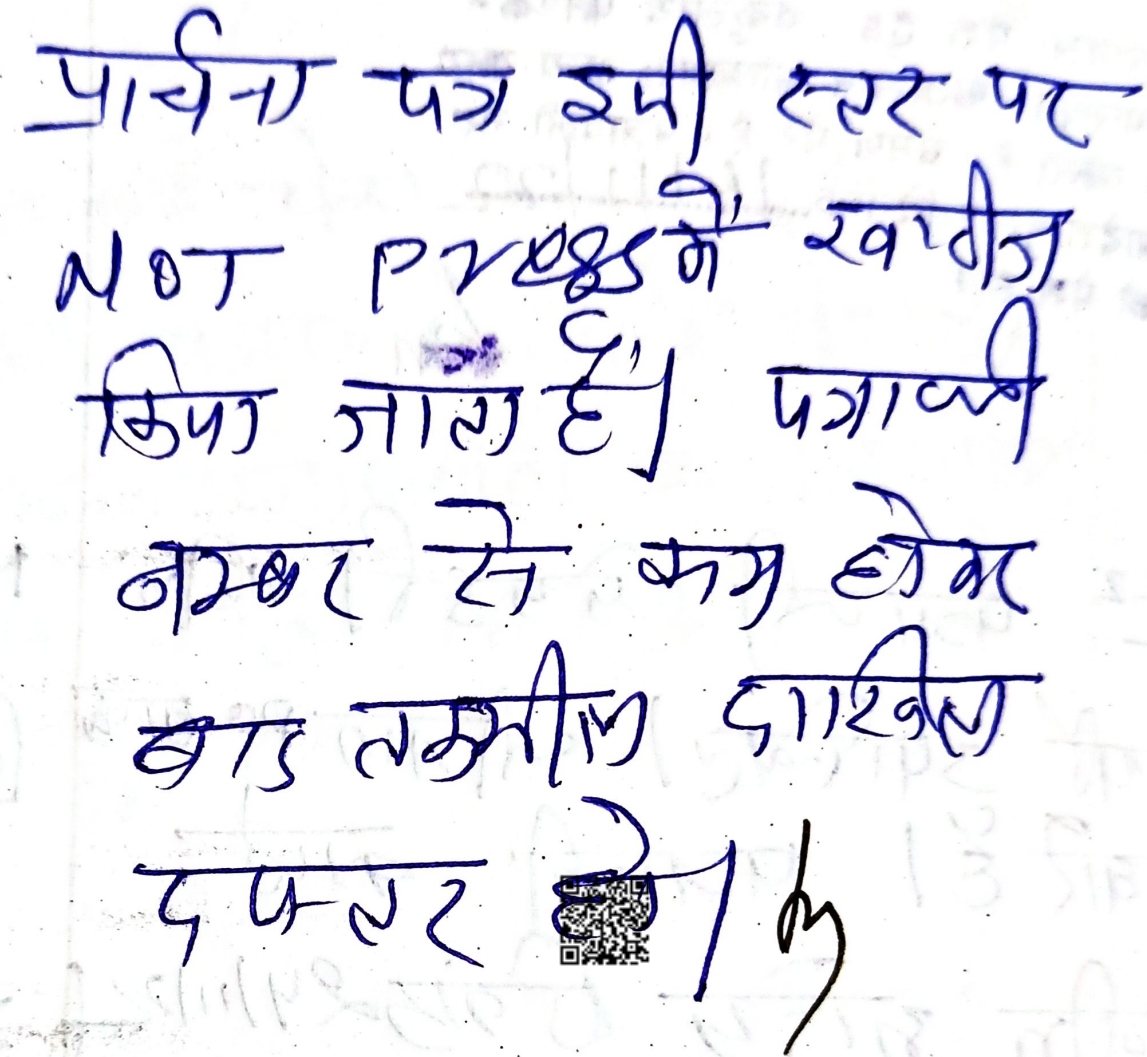 प्रार्थना पत्र इसी स्तर पर
NOT Press में खारीज
किया जाता है। पत्रावली
नम्बर से कम होकर
बाद तकमील दाखिल
दफ्तर हो।